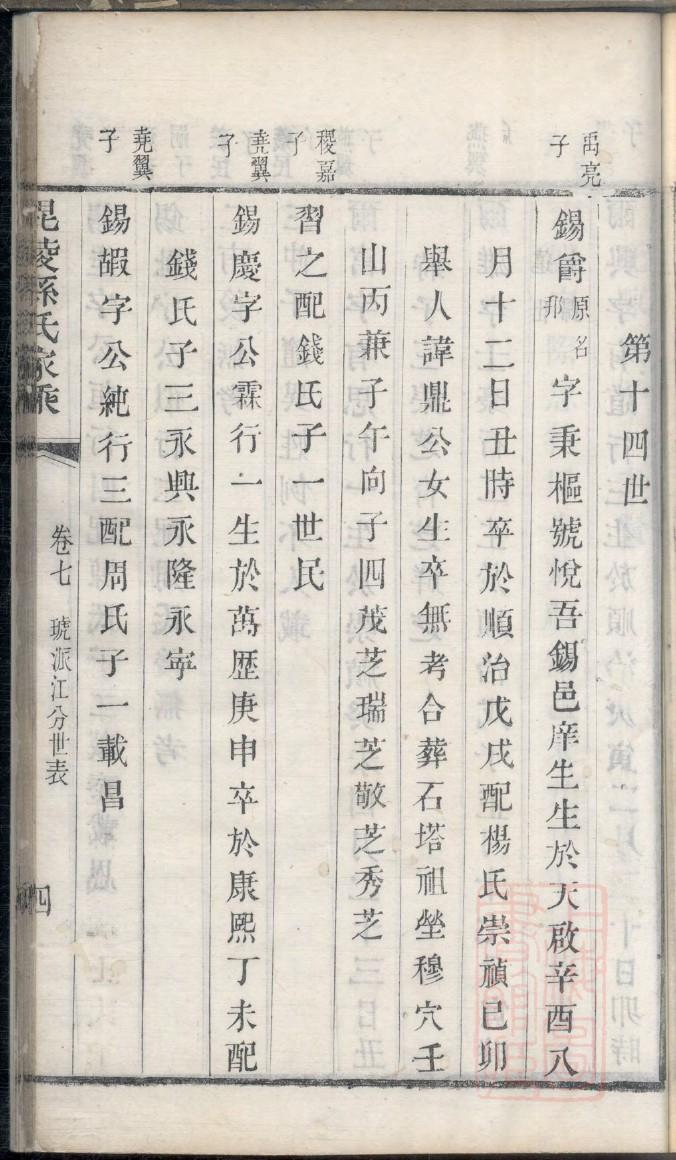 第十四世
禹亮子
錫爵原名邢字秉樞號悅吾錫邑庠生生於天啟辛酉八
月十二日丑時卒於順治戊戌配楊氏崇禎己卯
舉人諱鼎公女生卒無考合葬石塔祖塋穆穴壬
山丙兼子午向子四茂芝瑞芝敬芝秀芝
稷嘉子
習之配錢氏子一世民
堯翼子
錫慶字公霖行一生於萬歷庚申卒於康熙丁未配
錢氏子三永興永隆永寧
堯翼子
錫嘏字公純行三配周氏子一載昌
毘陵孫氏家乘
卷七 琥派江分世表
四